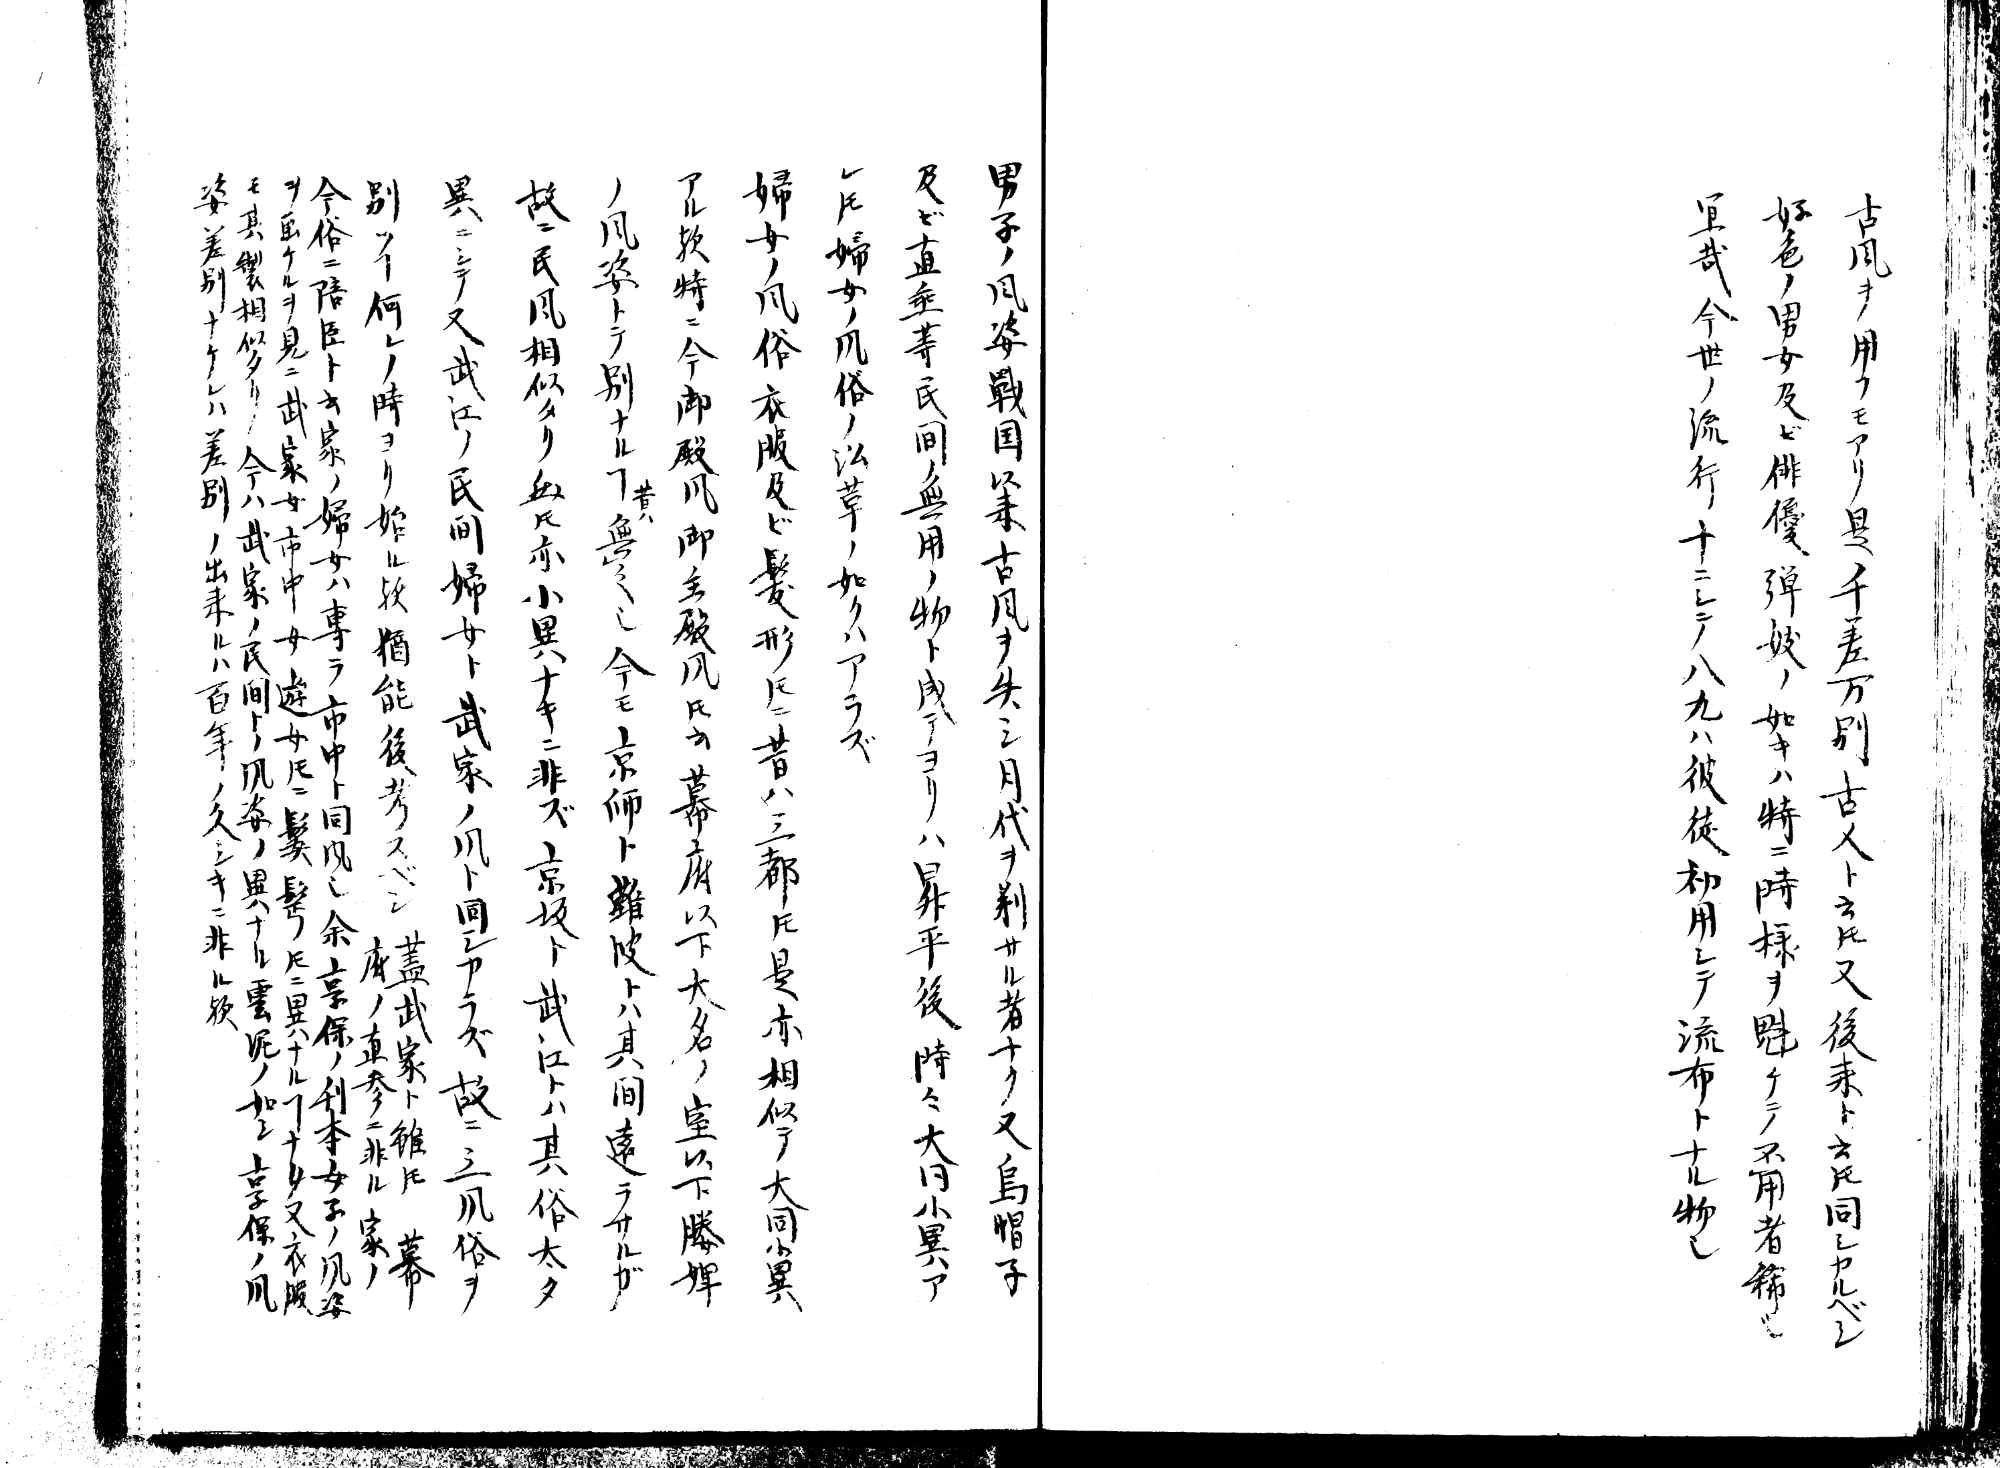 古風ヲ用フモアリ是ノ千差万別古人ト云ㇳモ又後来ト云ㇳモ同シカルベシ
好色ノ男女及ビ俳優弾妓ノ如キハ特ニ時様ヲ魁ケテ不用者稀也
宜哉今世ノ流行十ニシテ八九ハ彼徒初用シテ流布トナル物也
男子ノ風姿戦国以来古風ヲ失シ月代ヲ剃サル者ナク又烏帽子
及ビ直垂等民間ノ無用ノ物ト成テヨリハ昇平後時々大同小異ハア
レㇳモ婦女ノ風俗ノ沿革ノ如クハアラズ
婦女ノ風俗衣服及ビ髪形ㇳモニ昔ハ三都ㇳモ是亦相似テ大同小異
アル歟特ニ今御殿風御主殿風ㇳモ云幕府以下大名ノ室以下媵婢
ノ風姿トテ別ナルヿ昔ハ無之也今モ京師ト難波トハ其間遠ラサルガ
故ニ民風相似タリ然ㇳモ亦小異ハナキニ非ズ京坂ト武江トハ其俗太タ
異ニシテ又武江ノ民間婦女ト武家ノ風ト同シカラズ故ニ三風俗ヲ
別ツヿ何レノ時ヨリ始ル歟猶能後考スベシ
蓋武家ト雖ㇳモ幕
府ノ直参ニ非ル家ノ
今俗ニ陪臣ト云家ノ婦女ハ専ラ市中ト同風也余享保ノ刊本女子ノ風姿
ヲ画ケルヲ見ニ武家女市中女遊女ㇳモニ鬟髷ㇳモニ異ハナルヿナク又衣服
モ其製相似タリ今ハ武家ノ民間トノ風姿ノ異ハナル雲泥ノ如シ享保ノ風
姿差別ナケレハ差別ノ出来ルハ百年ノ久シキニ非ル歟